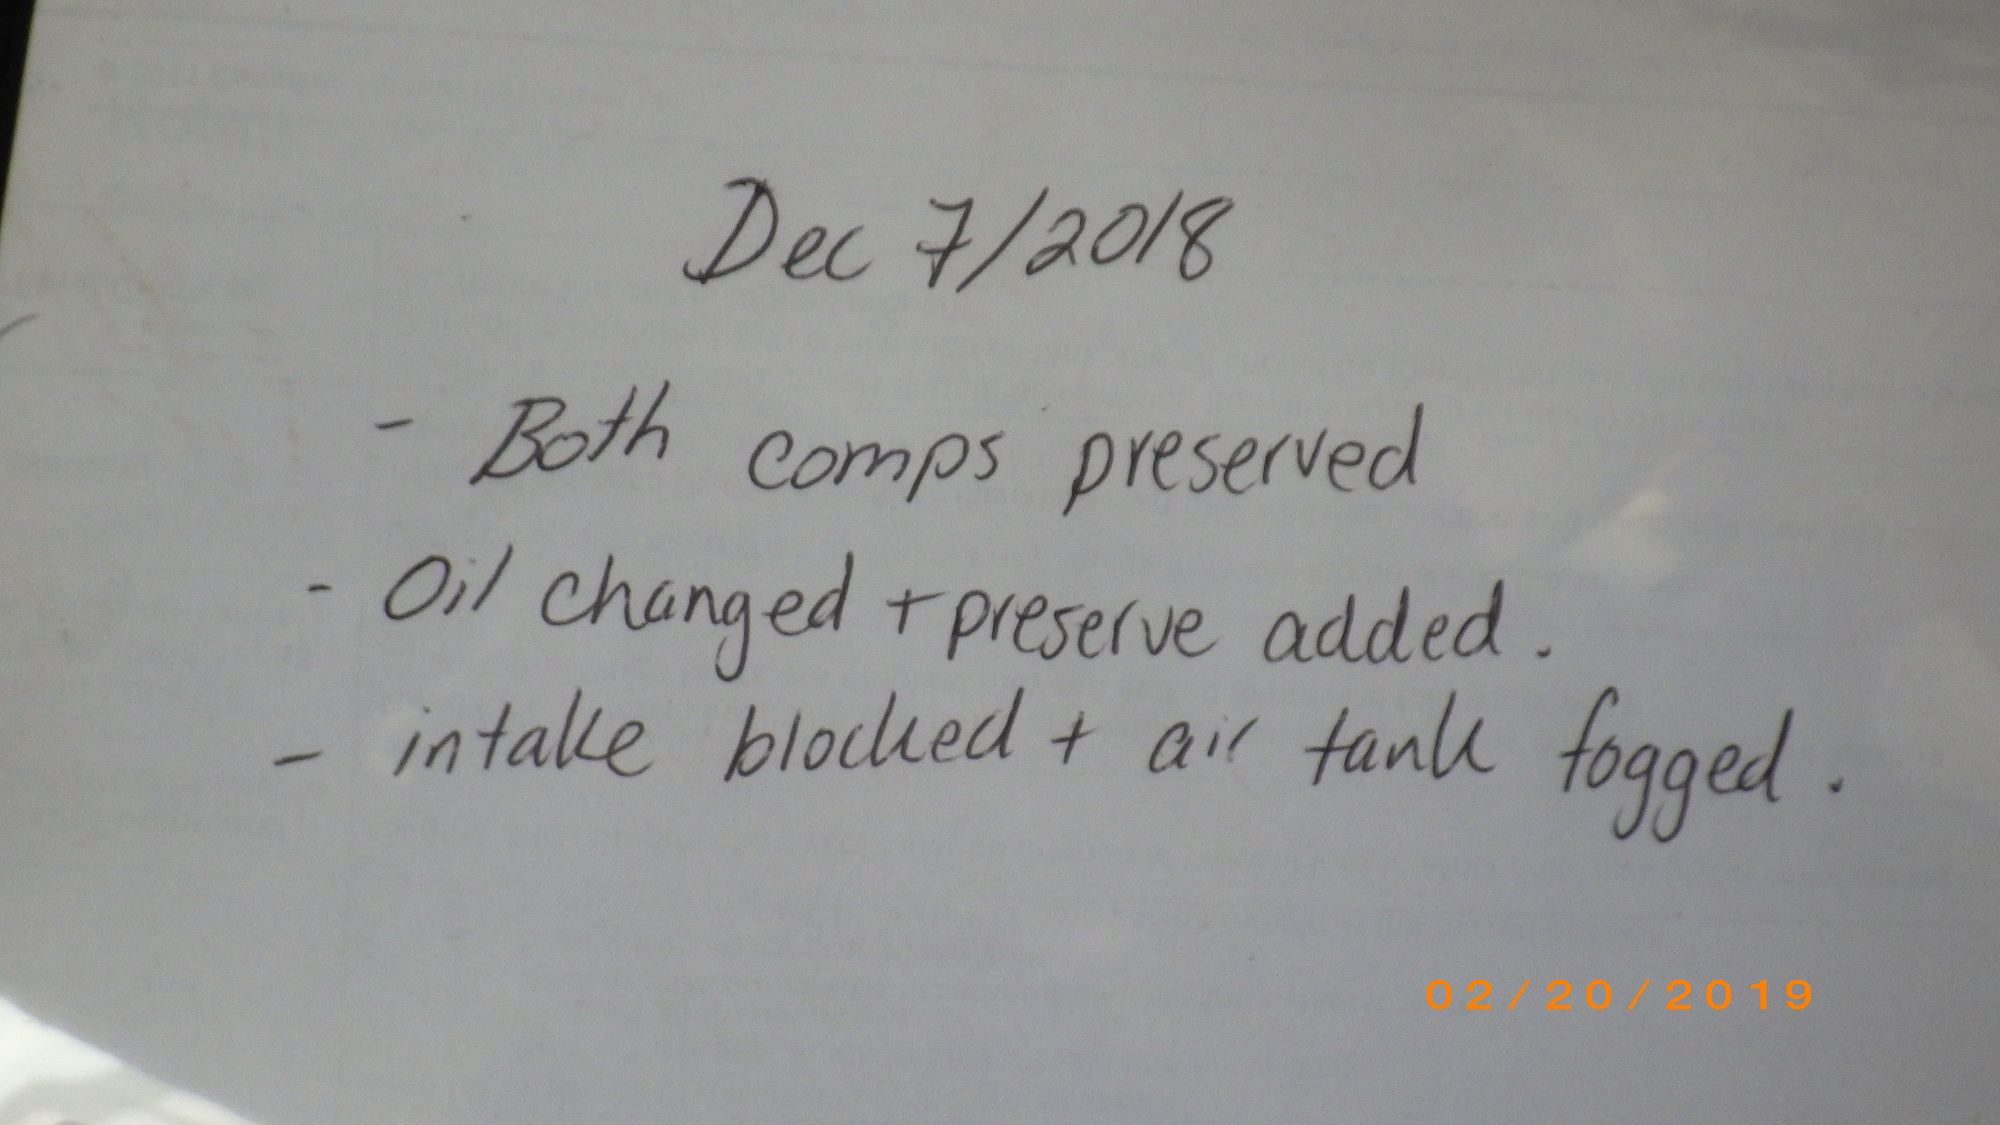 Dec 7/2018
- Both comps preserved
- Oil changed + preserve added.
- intake blocked + air tank fogged.
02/20/2019